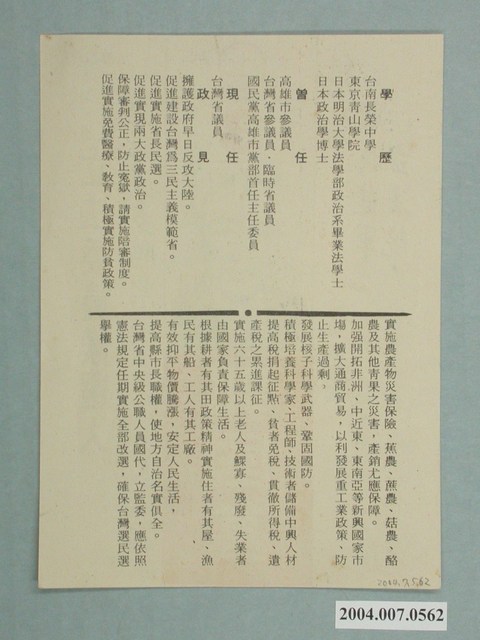 學歷
台南長榮中學
東京青山學院
日本明治大學法學部政治系畢業法學士
日本政治學博士
曾任
高雄市參議員
台灣省參議員、臨時省議員
國民黨高雄市黨部首任主任委員
現任
台灣省議員
政見
擁護政府早日反攻大陸。
促進建設台灣為三民主義模範省。
促進實施省長民選。
促進實現兩大政黨政治。
保障審判公正，防止寃獄，請實施陪審制度。
促進實施免費醫療、教育、積極實施防貧政策。
實施農產物災害保險、蕉農、蔗農、菇農、酪
農及其他青果之災害，產銷尤應保障。
加强開拓非洲、中近東、東南亞等新興國家市
場，擴大通商貿易，以利發展重工業政策、防
止生產過剩。
發展核子科學武器、鞏固國防。
積極培養科學家、工程師、技術者儲備中興人材
提高稅捐起征點、貧者免稅、貫徹所得稅、遺
產稅之累進課征。
實施六十五歲以上老人及鰥寡、殘廢、失業者
由國家負責保障生活。
根據耕者有其田政策精神實施住者有其屋、漁
民有其船、工人有其工廠。
有效抑平物價騰漲，安定人民生活，
提高縣市長職權，使地方自治名實俱全。
台灣省中央級公職人員國代，立監委，應依照
憲法規定任期實施全部改選，確保台灣選民選
舉權。
2004.7.562
2004.007.0562